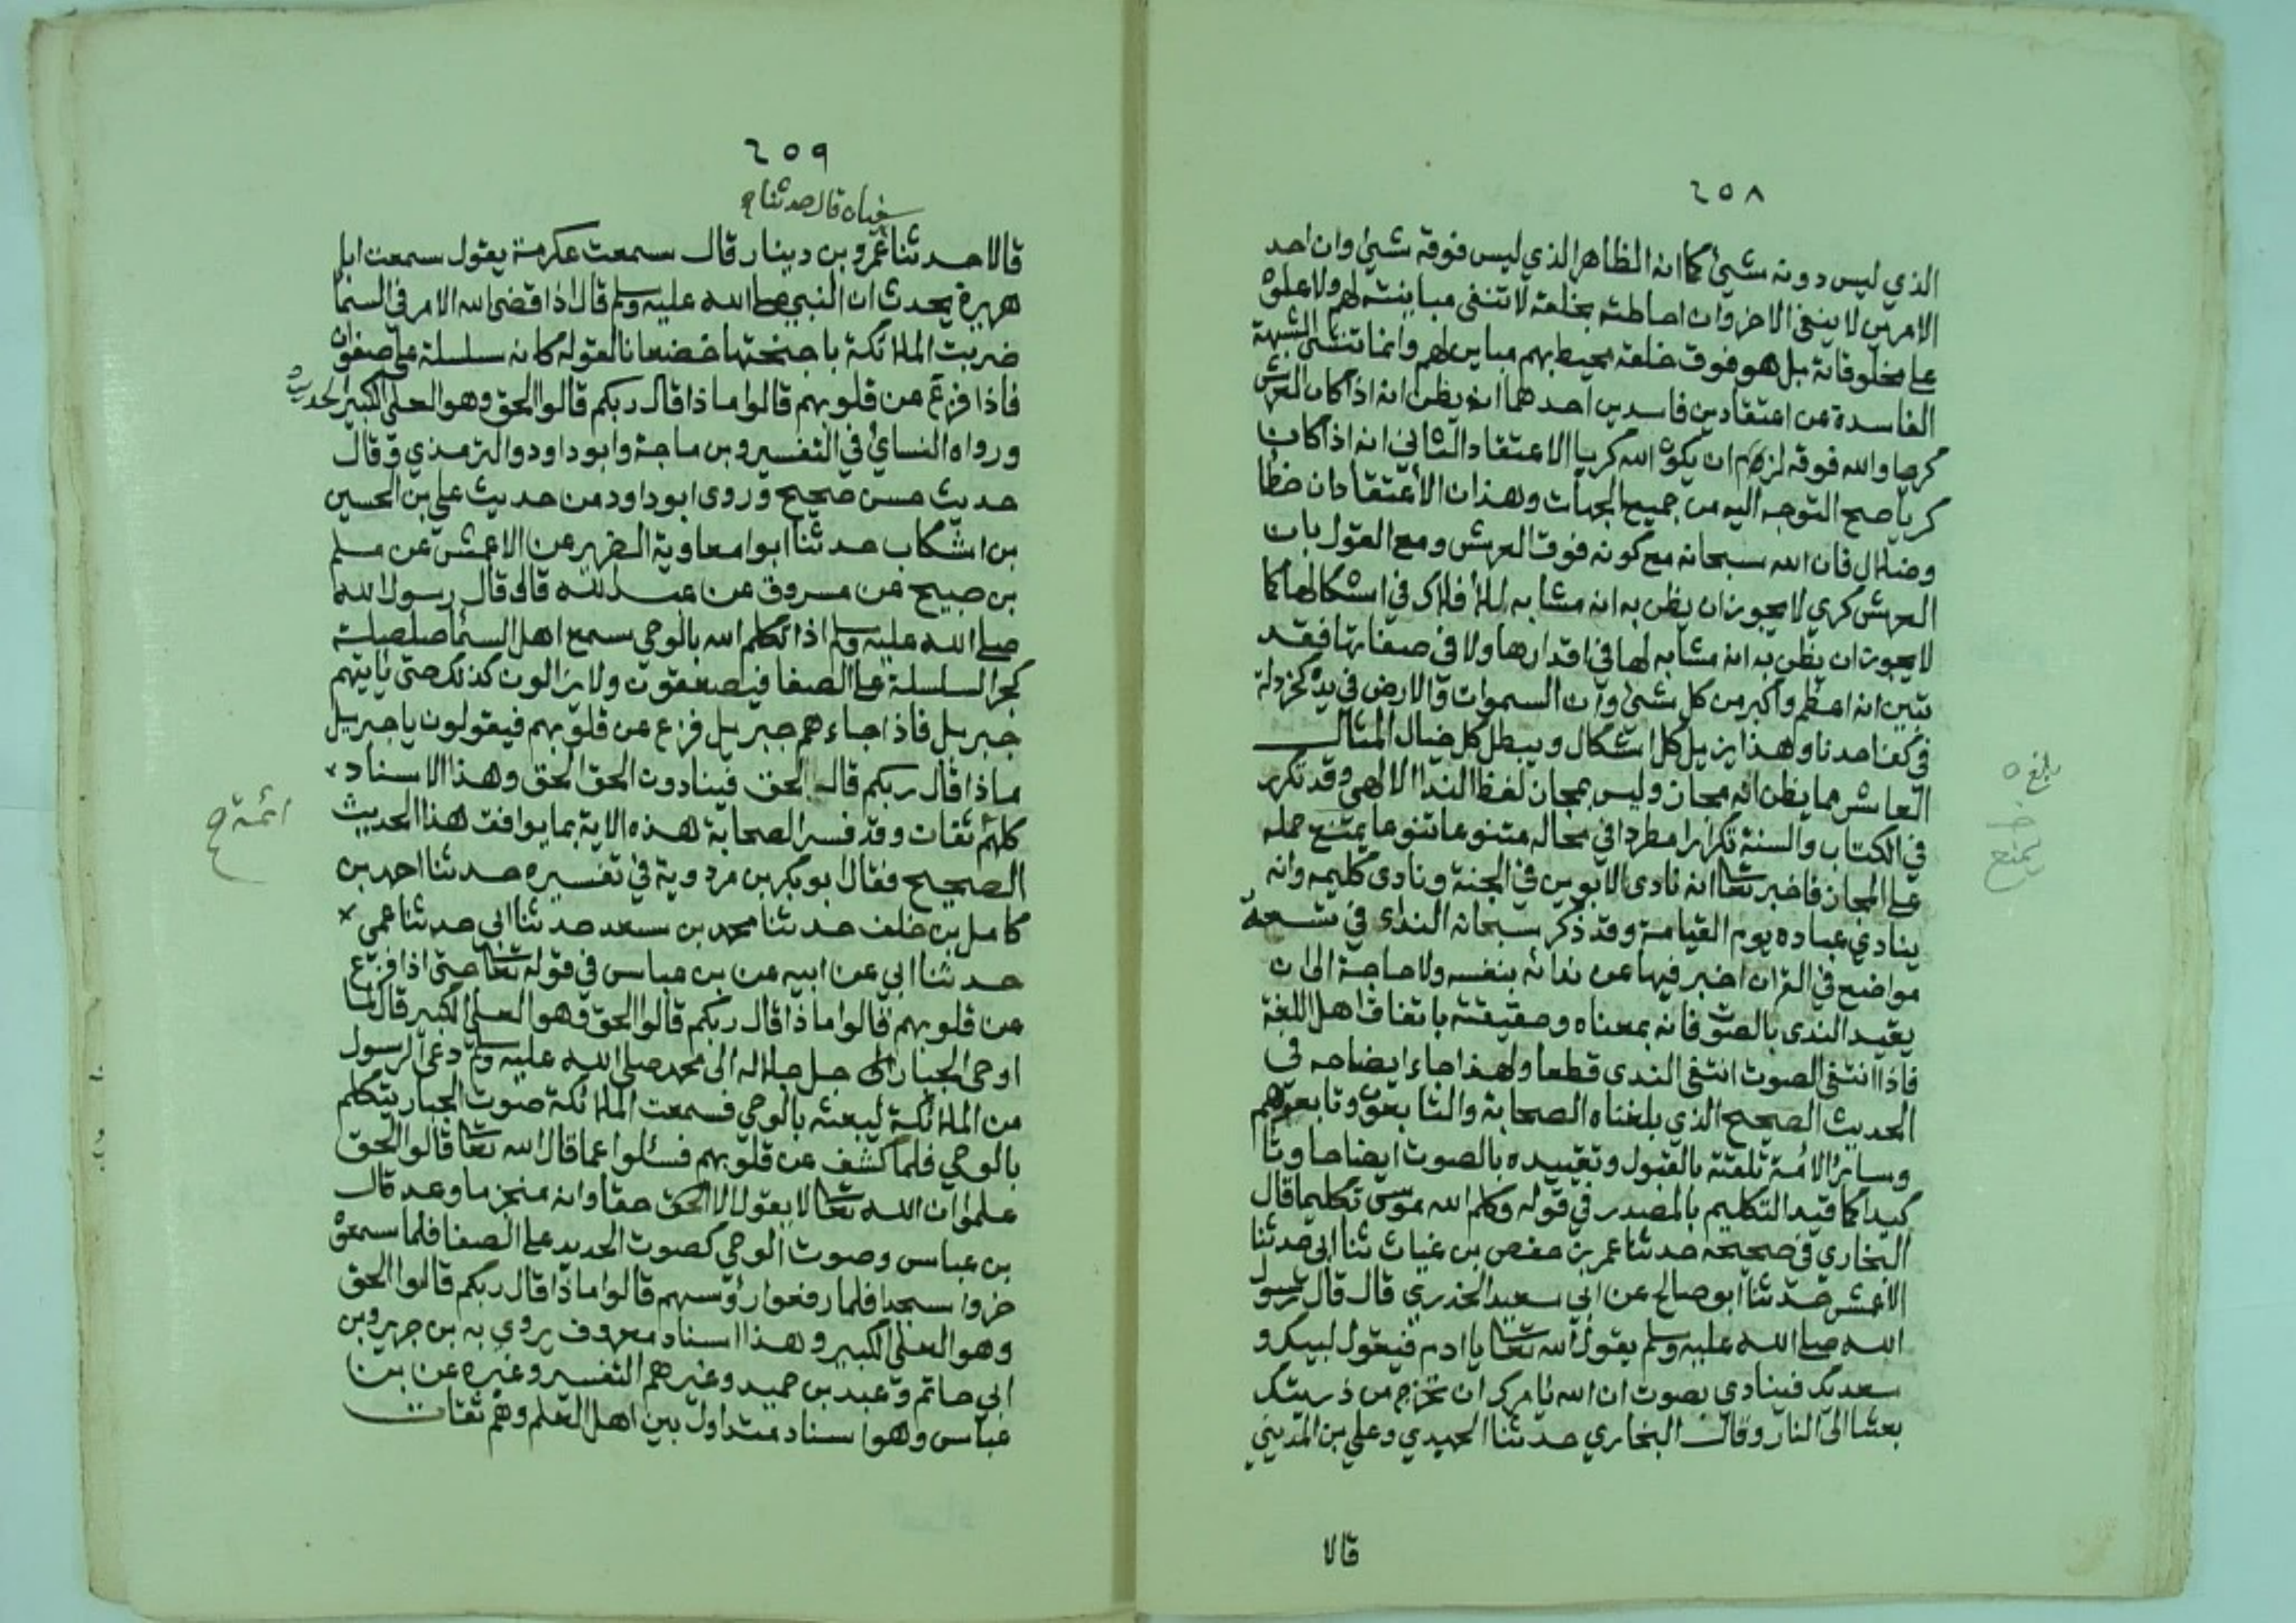 ٢٥٨
الذي ليس دونه شيئ كما انه الظاهر الذي ليس فوقه شيئ وان احد
الامرين لا ينفي الاخر وان احاطته بخلقه لا تنفي مباينته لهم ولا علوه
على مخلوقاته بل هو فوق خلقه محيط بهم مباين لهم وانما تنشئ الشبهة
الفاسدة عن اعتقادين فاسدين احدهما انه يظن انه اذا كان العرش
كريا والله فوقه لزم ان يكون الله كريا الاعتقاد الثاني انه اذا كان
كريا صح التوجه اليه من جميع الجهات وهذان الاعتقادان خطأ
وضلال فان الله سبحانه مع كونه فوق العرش ومع القول بان
العرش كري لا يجوز ان يظن به انه مشابه للافلاك في اشكالها كما
لا يجوز ان يظن به انه مشابه لها في اقدارها ولا في صفاتها فقد
تبين انه اعظم واكبر من كل شئ وان السموات والارض في يده كخردلة
في كف احدنا وهذا يزيل كل اشكال ويبطل كل خيال المثال
العاشر مما يظن انه مجاز وليس بمجاز لفظ الندا الالهي وقد تكرر
في الكتاب والسنة تكرارا مطردا في محاله متنوعا تنوعا يمتنع حمله
على المجاز فاخبر تعالى انه نادى الابوين في الجنة ونادى كليمه وانه
ينادي عباده يوم القيامة وقد ذكر سبحانه الندى في تسعة
مواضع في القران اخبر فيها عن ندائه بنفسه ولا حاجة الى ان
يقيد الندى بالصوت فانه بمعناه وحقيقته باتفاق اهل اللغة
فاذا انتفى الصوت انتفى الندى قطعا ولهذا جاء ايضاحه في
الحديث الصحيح الذي بلغناه الصحابة والتابعون وتابعوهم
وسائر الامة تلقته بالقبول وتقييده بالصوت ايضاحا وتا
كيدا كما قيد التكليم بالمصدر في قوله وكلم الله موسى تكليما قال
البخاري في صحيحه حدثنا عمر بن حفص بن غياث ثنا ابي حدثنا
الاعمش حدثنا ابو صالح عن ابي سعيد الخذري قال قال رسول
الله صلى الله عليه وسلم يقول الله تعالى يا ادم فيقول لبيك و
سعديك فينادي بصوت ان الله يامرك ان تخرج من ذريتك
بعثا الى النار وقال البخاري حدثنا الحميدي وعلي بن المديني
قالا
بلغ
يمتنع
٢٥٩
سفيان قال حدثنا
قالا حدثنا عمرو بن دينار قال سمعت عكرمة يقول سمعت ابا
هريرة يحدث ان النبي صلى الله عليه وسلم قال اذا قضى الله الامر في السما
ضربت الملائكة باجنحتها خضعانا لقوله كانه سلسلة على صفوان
فاذا فزع عن قلوبهم قالوا ماذا قال ربكم قالوا الحق وهو العلي الكبير الحديث
ورواه النسائي في التفسير وبن ماجة وابو داود والترمذي وقال
حديث حسن صحيح وروى ابو داود من حديث علي بن الحسين
بن اشكاب حدثنا ابوا معاوية الضرير عن الاعمش عن مسلم
بن صبيح عن مسروق عن عبد الله قال قال رسول الله
صلى الله عليه وسلم اذا تكلم الله بالوحي سمع اهل السما صلصلة
كجر السلسلة على الصفا فيصعقون ولا يزالون كذلك حتى ياتيهم
جبريل فاذا جاءهم جبريل فزع عن قلوبهم فيقولون يا جبريل
ماذا قال ربكم قال الحق فينادون الحق الحق وهذا الاسناد
كلهم ثقات وقد فسر الصحابة هذه الاية بما يوافق هذا الحديث
الصحيح فقال ابو بكر بن مردوية في تفسيره حدثنا احمد بن
كامل بن خلف حدثنا محمد بن سعد حدثنا ابي حدثنا عمي
حدثنا ابي عن ابيه عن بن عباس في قوله تعالى حتى اذا فزع
عن قلوبهم قالوا ماذا قال ربكم قالوا الحق وهو العلي الكبير قال لما
اوحى الجبار جل جلاله الى محمد صلى الله عليه وسلم دعى الرسول
من الملائكة ليبعثه بالوحي فسمعت الملائكة صوت الجبار يتكلم
بالوحي فلما كشف عن قلوبهم فسئلوا عما قال الله تعالى قالوا الحق
علموا ان الله تعالى لا يقول الا الحق حقا وانه منجز ما وعد قال
بن عباس وصوت الوحي كصوت الحديد على الصفا فلما سمعوا
خروا سجدا فلما رفعوا رؤسهم قالوا ماذا قال ربكم قالوا الحق
وهو العلي الكبير وهذا اسناد معروف يروي به بن جرير وبن
ابي حاتم وعبد بن حميد وغيرهم التفسير وغيره عن بن
عباس وهو اسناد متداول بين اهل العلم وهم ثقات
ائمة